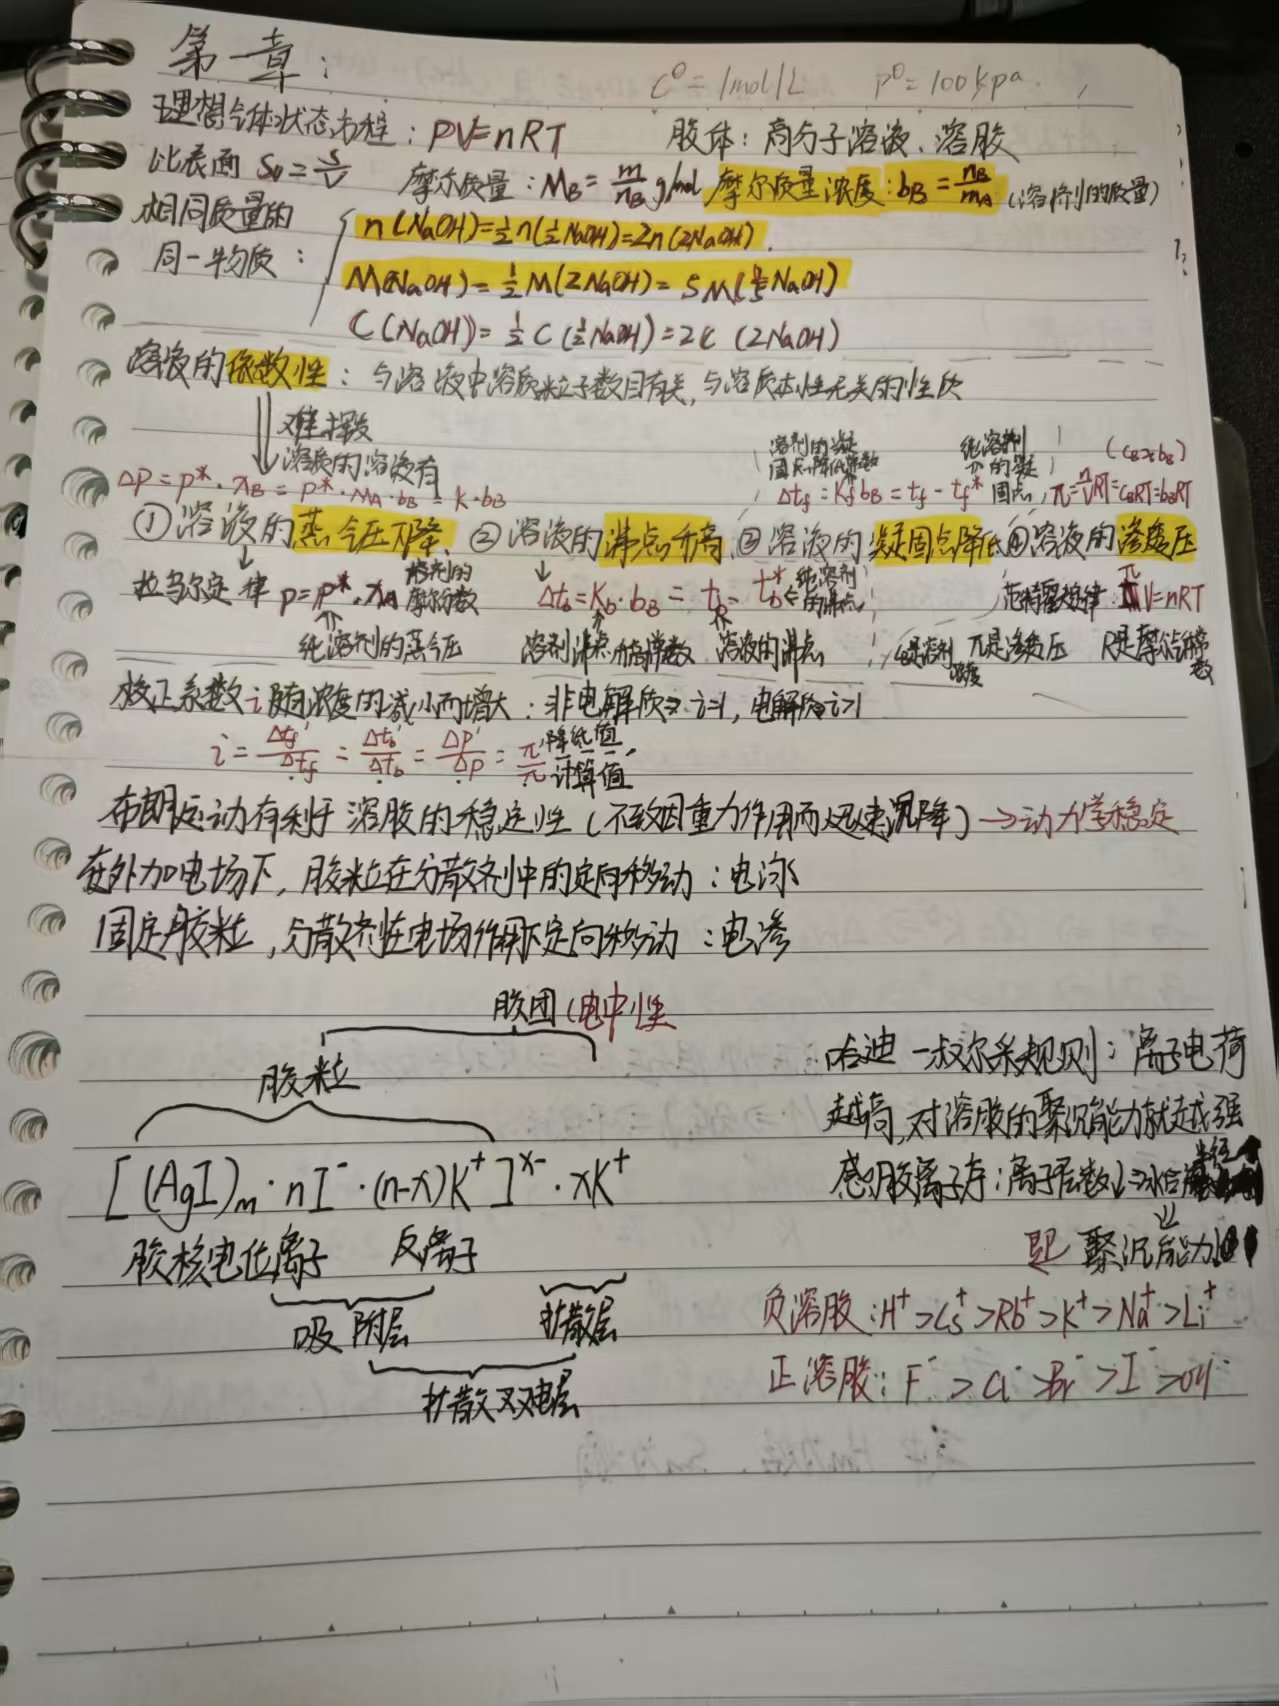 第一章：
C⁰=1mol/L P⁰=100kpa.
理想气体状态方程：PV=nRT 胶体：高分子溶液、溶胶
比表面 S₀=S/V 摩尔质量：M_B=m/n_B g/mol 摩尔质量浓度：b_B=n_B/m_A（溶剂的质量）
相同质量的
同一物质：
n(NaOH)=½n(½NaOH)=2n(2NaOH).
M(NaOH)=½M(2NaOH)=5M(⅕NaOH)
C(NaOH)=½C(½NaOH)=2C(2NaOH)
溶液的依数性：与溶液中溶质粒子数目有关，与溶质本性无关的性质
难挥发
溶质的溶液有
ΔP=P*·x_B=P*·M_A·b_B=K·b_B
溶剂的凝
固点降低常数
Δt_f=K_f b_B=t_f-t_f*
纯溶剂
的凝
固点
(c_B≈b_B)
π=n/V RT=c_BRT=b_BRT
①溶液的蒸气压下降 ②溶液的沸点升高 ③溶液的凝固点降低 ④溶液的渗透压
拉乌尔定律 p=p*·x_A 溶剂的摩尔分数 Δt_b=K_b·b_B=t_b-t_b* 纯溶剂的沸点 范特霍夫定律 πV=nRT
纯溶剂的蒸气压 溶剂沸点升高常数 溶液的沸点 π是渗透压 R是摩尔气体常数
校正系数i随浓度的减小而增大：非电解质i=1，电解质i>1
i=Δt_f'/Δt_f=Δt_b'/Δt_b=Δp'/Δp=π'/π 降低值/计算值
布朗运动有利于溶胶的稳定性（不致因重力作用而迅速沉降）→动力学稳定
在外加电场下，胶粒在分散剂中的定向移动：电泳
固定胶粒，分散剂在电场作用下定向移动：电渗
胶团（电中性
胶粒
[(AgI)m·nI⁻·(n-x)K⁺]ˣ⁻·xK⁺
胶核电位离子 反离子
吸附层 扩散层
扩散双电层
哈迪一叔尔采规则：离子电荷
越高，对溶胶的聚沉能力就越强
感胶离子序：离子层数↓→水合半径↑
即 聚沉能力
负溶胶：H⁺>Cs⁺>Rb⁺>K⁺>Na⁺>Li⁺
正溶胶：F⁻>Cl⁻>Br⁻>I⁻>OH⁻